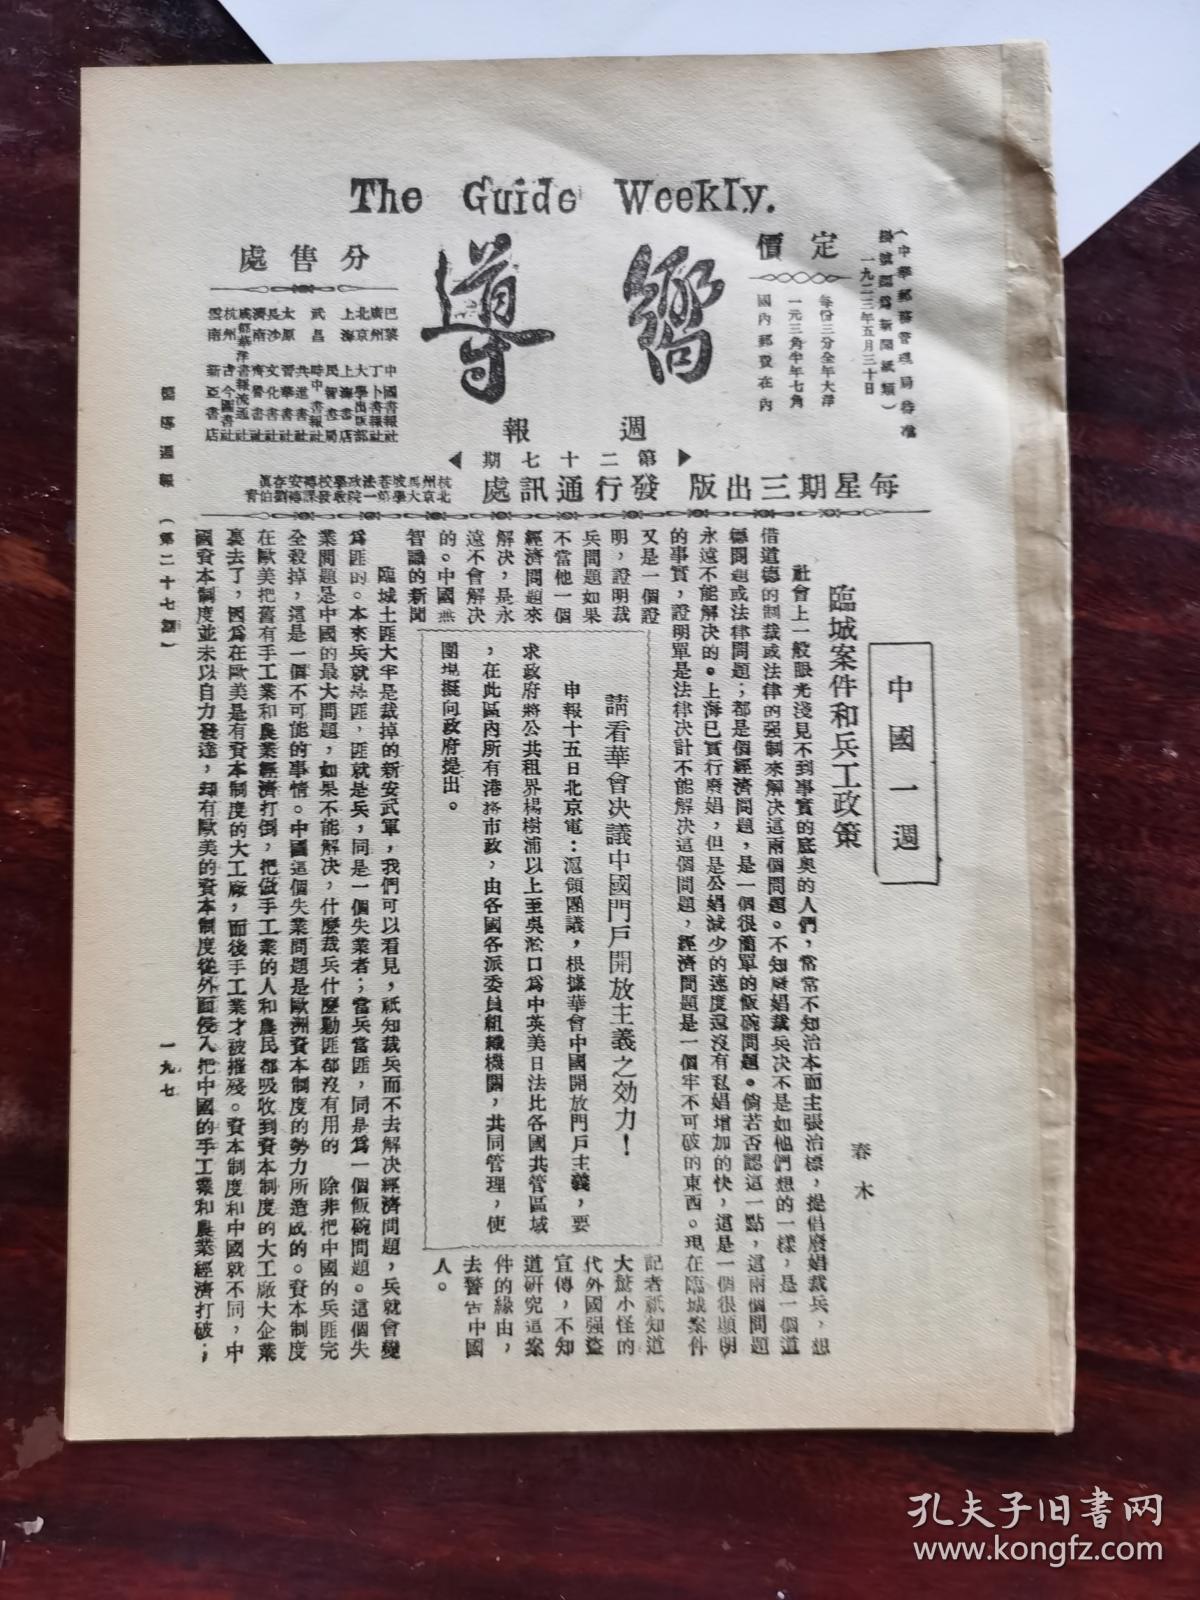 The Guide Weekly.
(中華郵務管理局特准
掛號認爲新聞紙類)
一九二三年五月三十日
定價
每份三分全年大洋
一元三角半年七角
國內郵費在內
嚮導
週報
第二十七期
分售處
巴黎 中國書報社
廣州 丁卜書報社
北京 大學出版部
上海 上海書店
民智書局
武昌 時中書報社
共進書社
太原 晋華書社
長沙 文化書社
濟南 齊魯書社
成都華洋書報流通社
杭州 古今圖書社
雲南 新亞書店
每星期三出版
發行通訊處
中國一週
臨城案件和兵工政策
春木
社會上一般眼光淺見不到事實的底奥的人們,常常不知治本而主張治標,提倡廢娼裁兵,想
借道德的制裁或法律的强制來解决這兩個問題。不知廢娼裁兵决不是如他們想的一樣,是一個道
德問題或法律問題;都是個經濟問題,是一個很簡單的飯碗問題。倘若否認這一點,這兩個問題
永遠不能解决的。上海已實行廢娼,但是公娼減少的速度還沒有私娼增加的快,這是一個很顯明
的事實,證明單是法律决計不能解决這個問題,經濟問題是一個牢不可破的東西。現在臨城案件
又是一個證
明,證明裁
兵問題如果
不當他一個
經濟問題來
解决,是永
遠不會解决
的。中國無
智識的新聞
記者祇知道
大驚小怪的
代外國强盜
宣傳,不知
道研究這案
件的緣由,
去警告中國
人。
請看華會决議中國門戶開放主義之効力!
申報十五日北京電:滬領團議,根據華會中國開放門戶主義,要
求政府將公共租界楊樹浦以上至吳淞口爲中英美日法比各國共管區域
,在此區內所有港務市政,由各國各派委員組織機關,共同管理,使
團現擬向政府提出。
臨城土匪大半是裁掉的新安武軍,我們可以看見,祇知裁兵而不去解决經濟問題,兵就會變
爲匪的。本來兵就是匪,匪就是兵,同是一個失業者;當兵當匪,同是爲一個飯碗問題。這個失
業問題是中國的最大問題,如果不能解决,什麼裁兵什麼勦匪都沒有用的 除非把中國的兵匪完
全殺掉,這是一個不可能的事情。中國這個失業問題是歐洲資本制度的勢力所造成的。資本制度
在歐美把舊有手工業和農業經濟打倒,把做手工業的人和農民都吸收到資本制度的大工廠大企業
裏去了,因爲在歐美是有資本制度的大工廠,而後手工業才被摧殘。資本制度和中國就不同,中
國資本制度並未以自力發達,却有歐美的資本制度從外面侵入把中國的手工業和農業經濟打破;
嚮導週報 (第二十七期)
一九七
孔夫子旧书网
www.kongfz.com